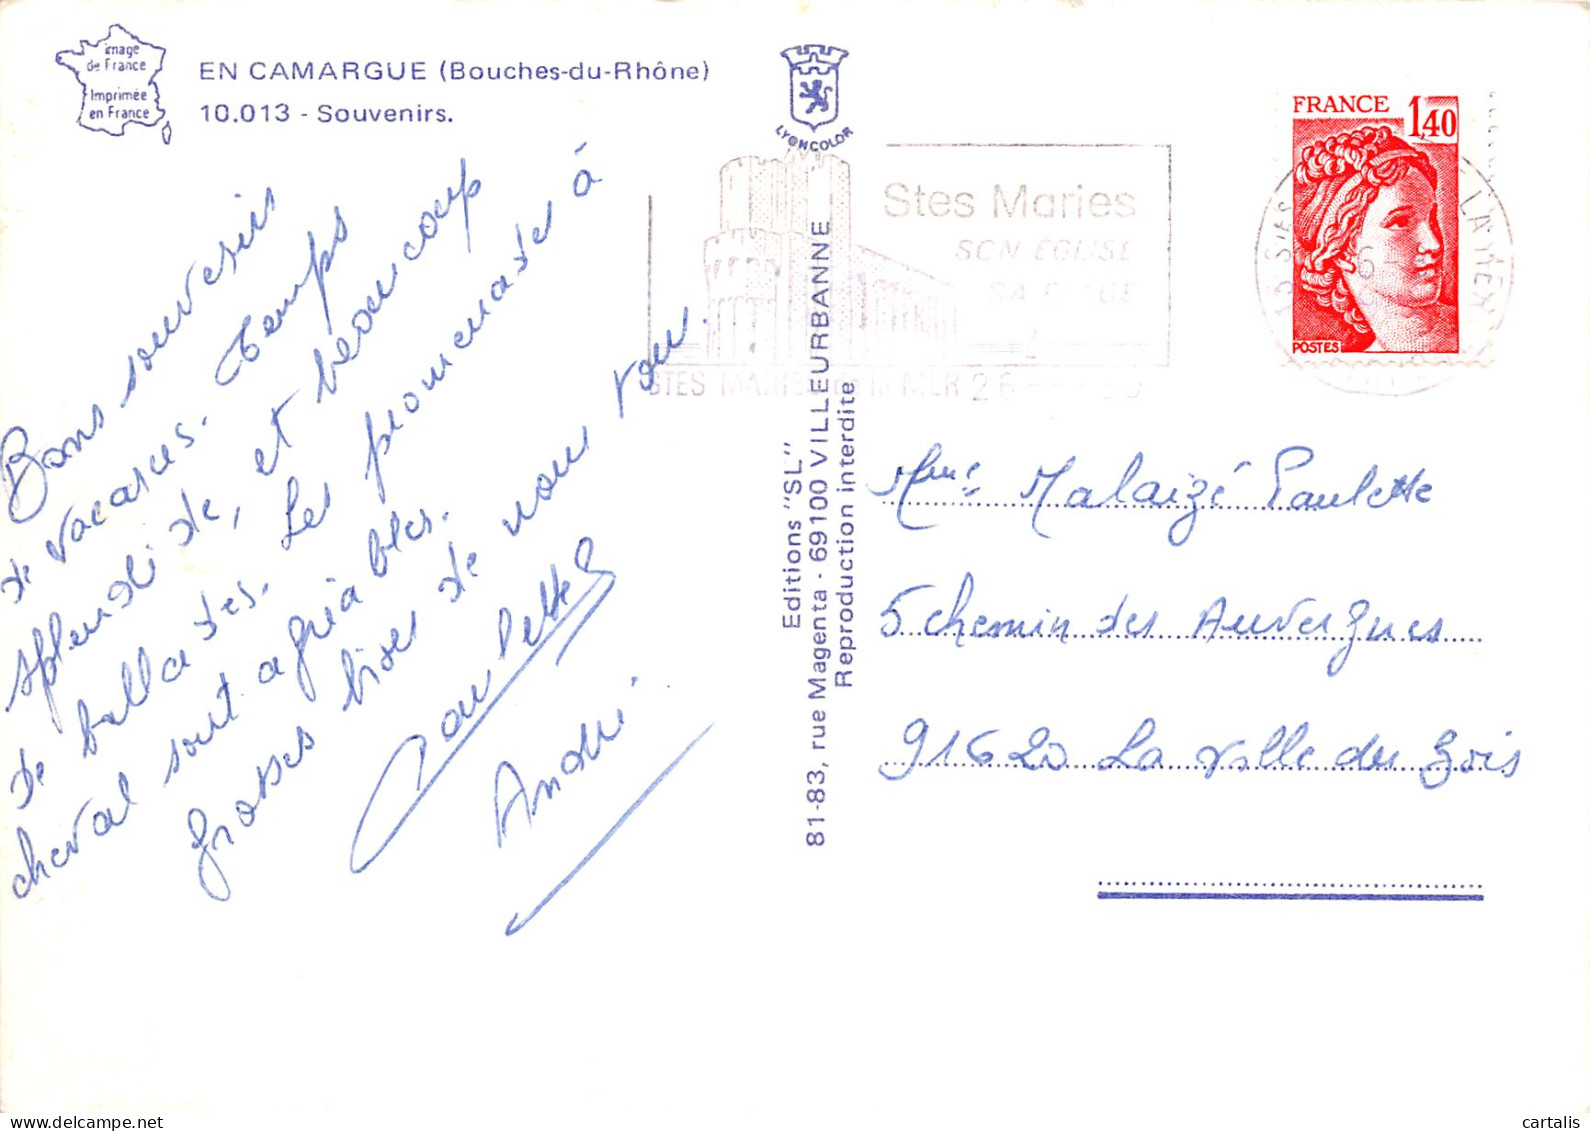 Image
de France
Imprimée
en France
EN CAMARGUE (Bouches-du-Rhône)
10.013 - Souvenirs.
LYONCOLOR
Bons souvenirs
de vacances. Temps
splendide, et beaucoup
de ballades. Les promenades à
cheval sont agréables.
Grosses bises de nous tous.
Paulette
André
Editions "SL"
81-83, rue Magenta - 69100 VILLEURBANNE
Reproduction interdite
Stes Maries
SON EGLISE
SA PLAGE
STES MARIES de la MER 26
FRANCE
1,40
POSTES
Mme Malaizé Paulette
5 chemin des Auvergnes
91620 La Ville du Bois
CARTALIS